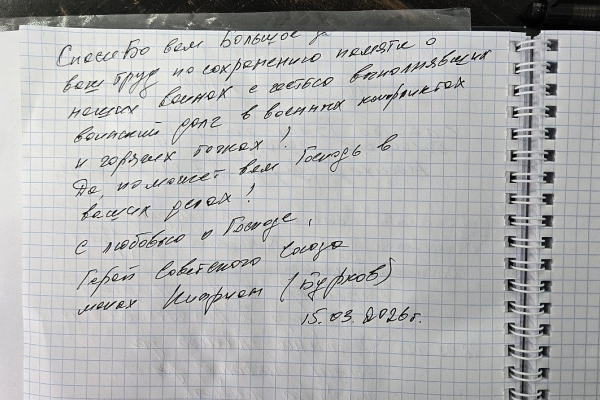 Спасибо вам Большое за
ваш труд по сохранению памяти о
наших воинах с честью выполнявших
воинский долг в военных конфликтах
и горячих точках!
Да, поможет вам Господь в
ваших делах!
С любовью о Господе,
Герой Советского Союза
монах Киприан (Бурков)
15.03.2026г.